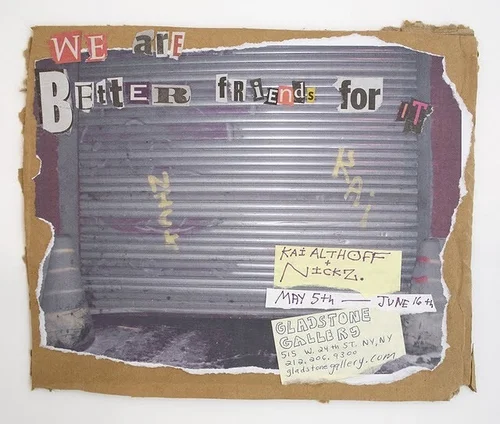 WE are
BEttER friends for iT
Nick
KAi
KAI ALTHOFF
+
NICK Z.
MAY 5th — JUNE 16th
GLADSTONE
GALLERY
515 W. 24th ST. NY, NY
212.206.9300
gladstonegallery.com